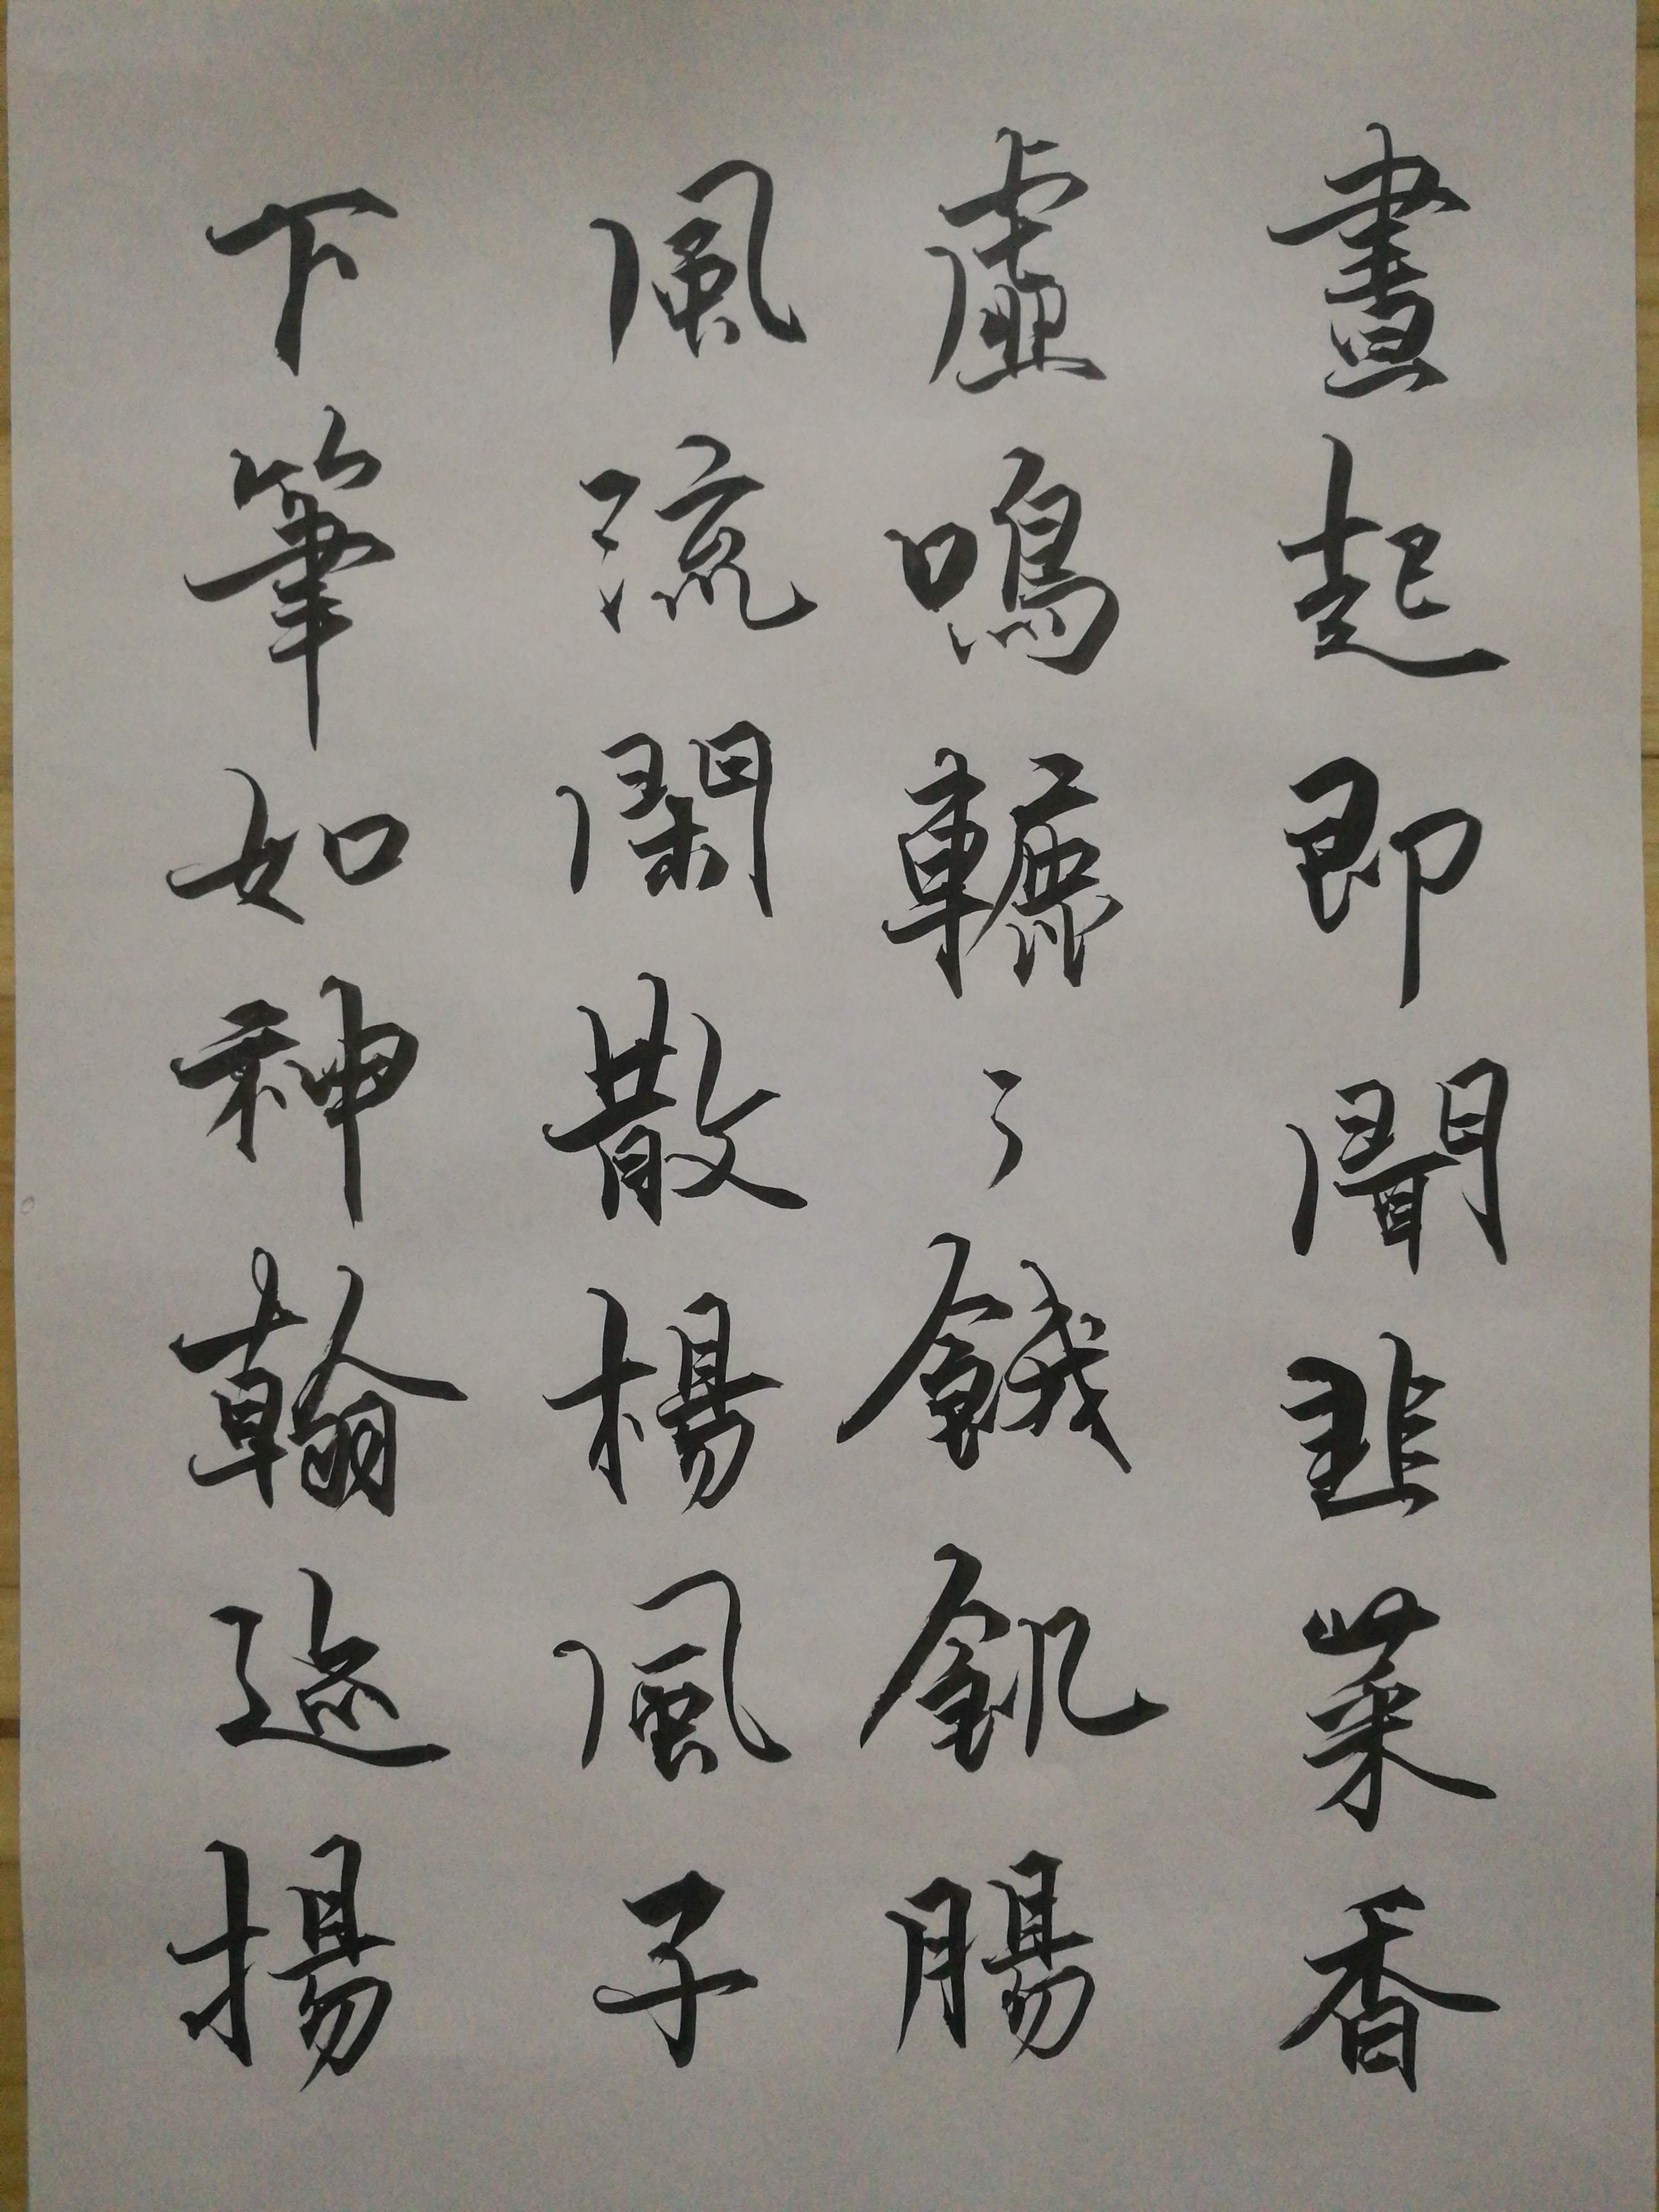 晝起即聞韭菜香
虛鳴轆々餓飢腸
風流閑散楊風子
下筆如神翰迹揚